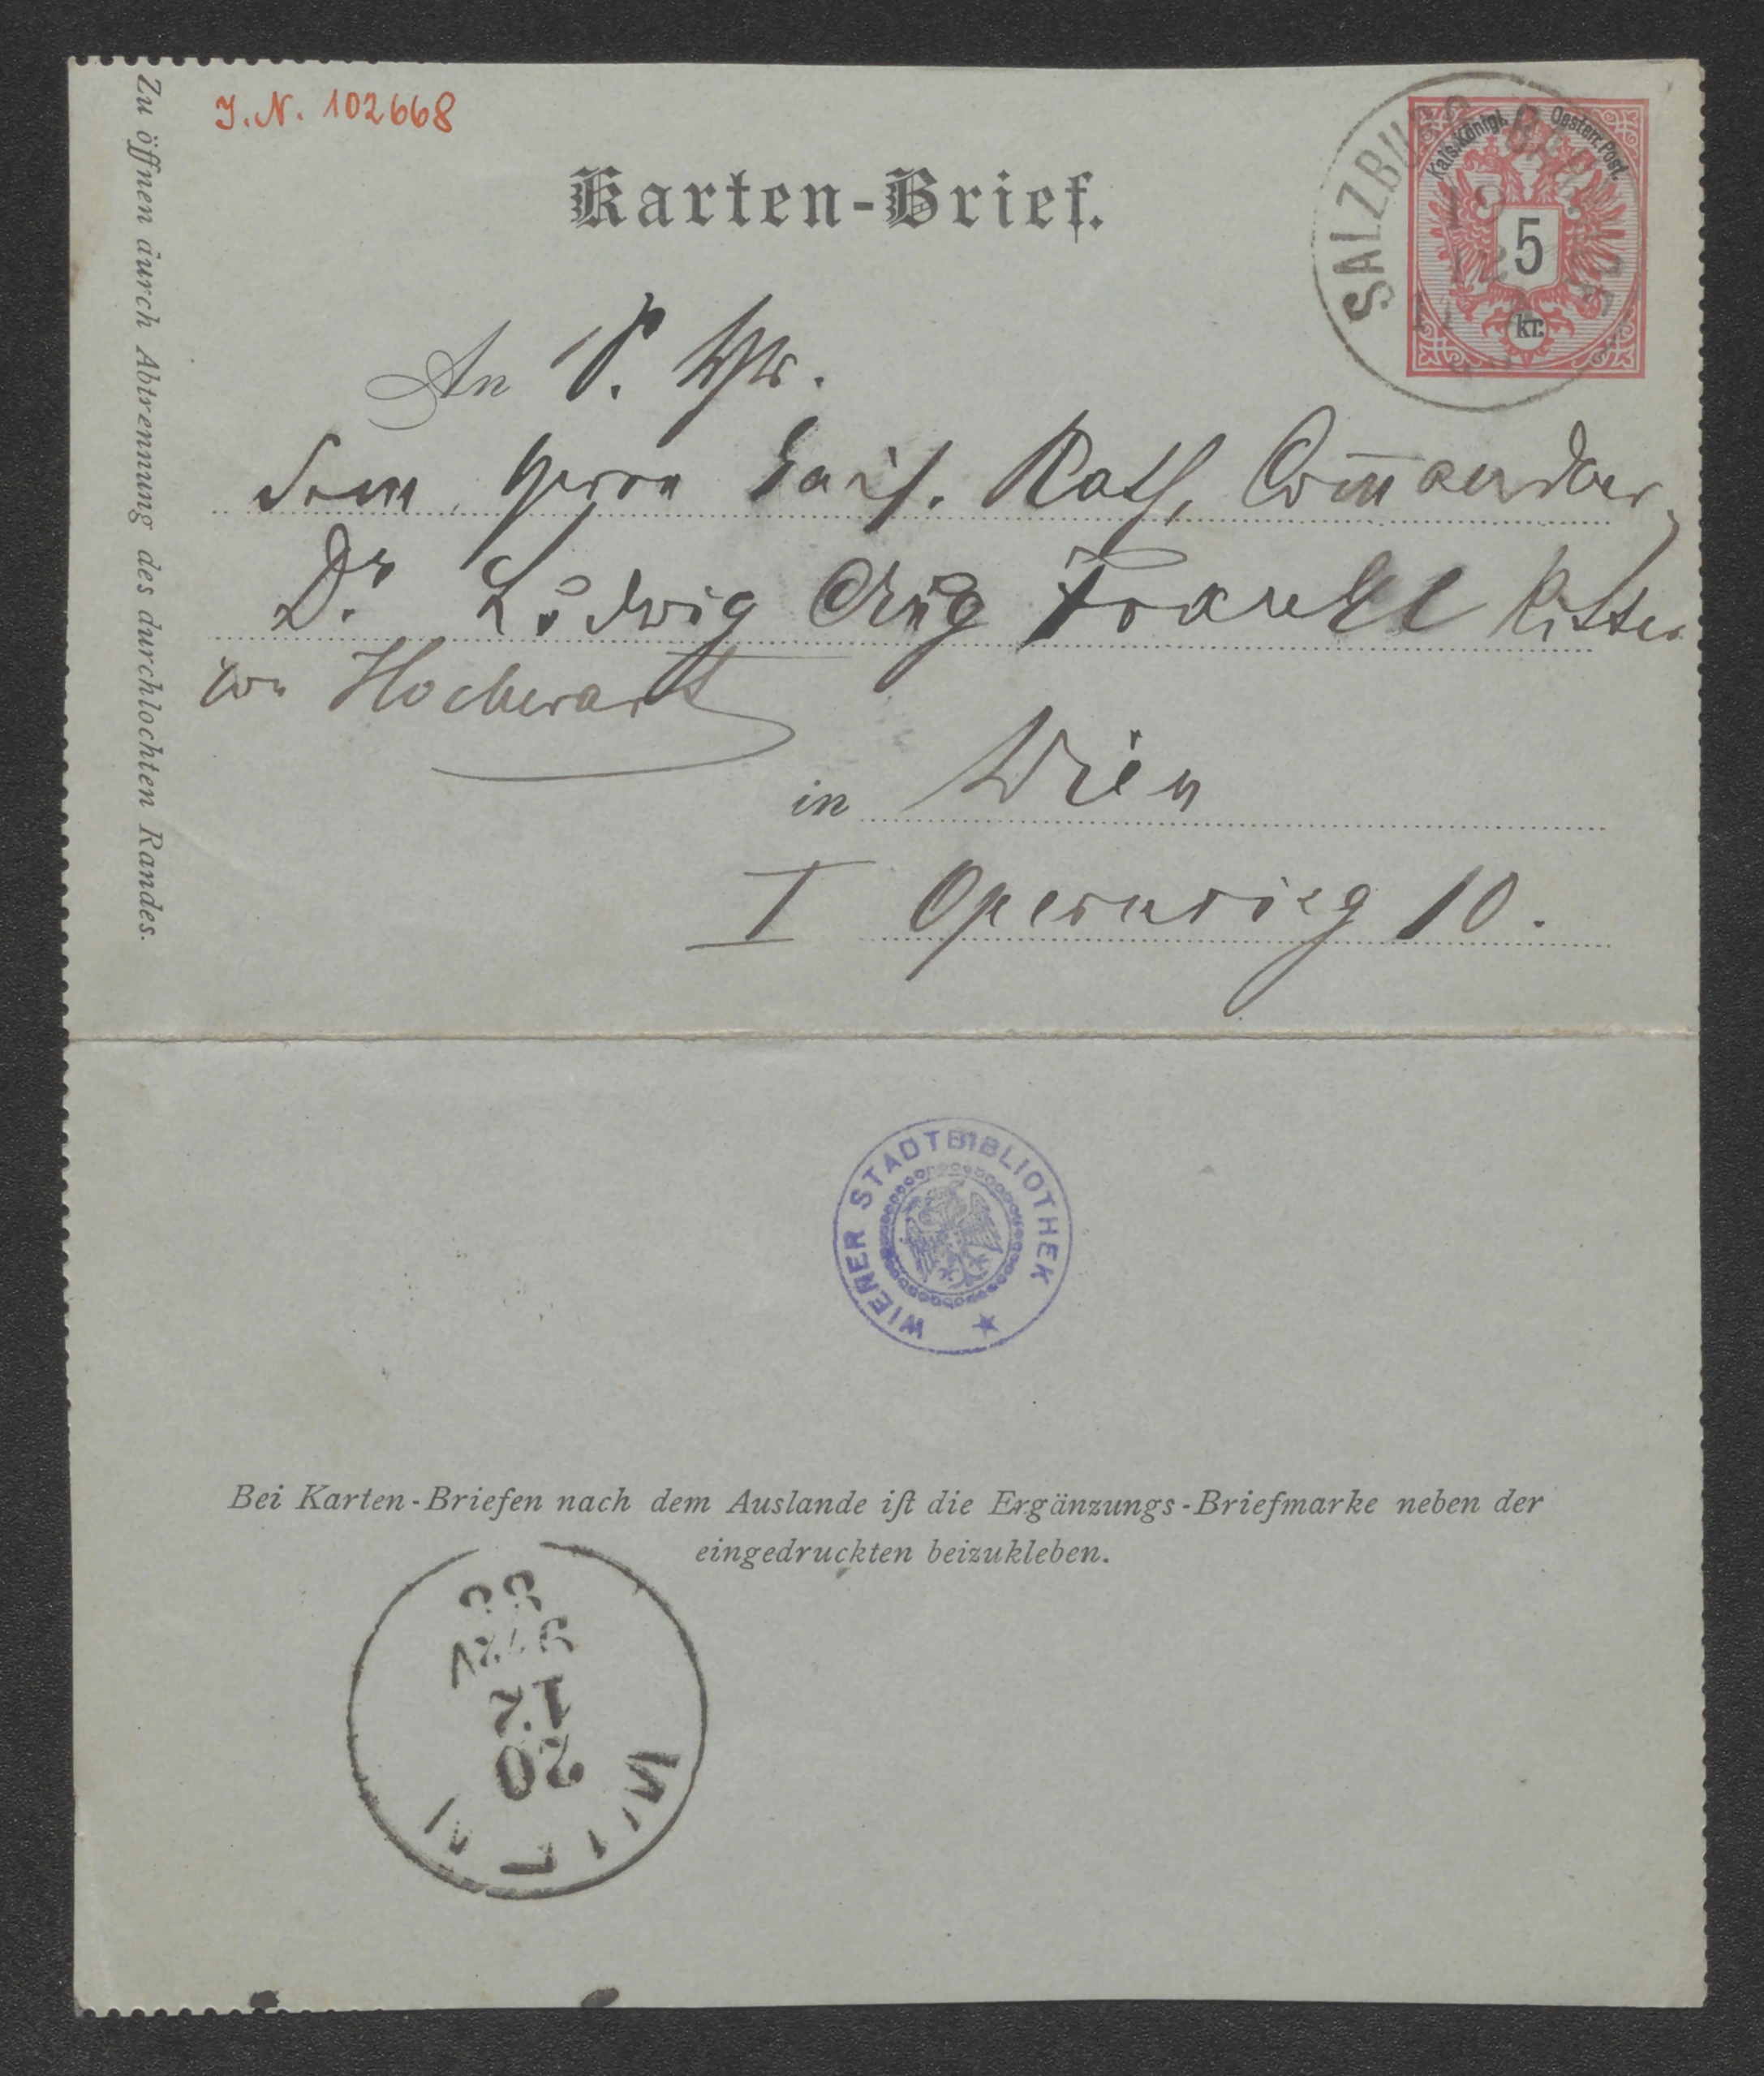 J. N. 102668
Karten-Brief.
Kais. Königl. Oesterr. Post.
5
kr.
SALZBURG BAHNHOF
19
12
An Sr. Wgb.
dem Herrn kais. Rath, Commandeur,
Dr. Ludwig Aug Frankl Ritter
von Hochwart
in Wien
I Opernring 10.
Zu öffnen durch Abtrennung des durchlochten Randes.
WIENER STADTBIBLIOTHEK
Bei Karten-Briefen nach dem Auslande iſt die Ergänzungs-Briefmarke neben der
eingedruckten beizukleben.
WIEN
20
12
88